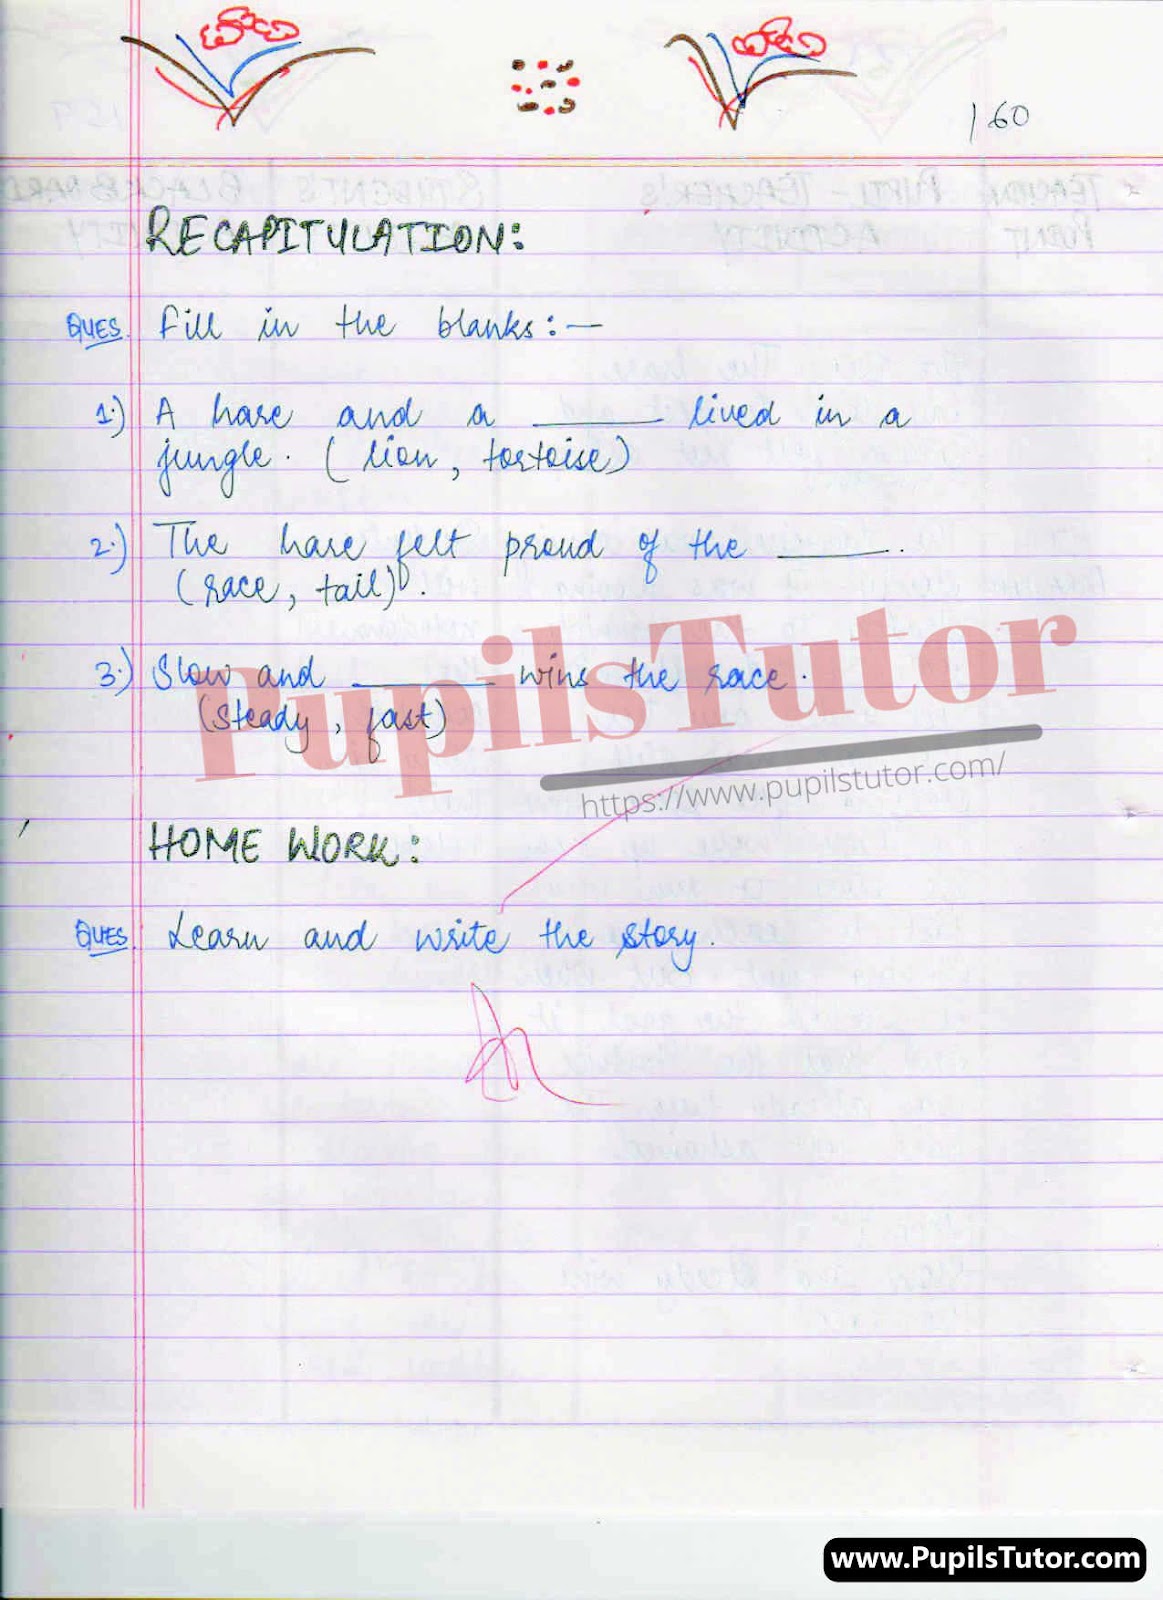 160
RECAPITULATION:
QUES. Fill in the blanks:—
1.) A hare and a ______ lived in a
jungle. (lion, tortoise)
2.) The hare felt proud of the ______.
(race, tail).
3.) Slow and ______ wins the race.
(steady, fast)
PupilsTutor
https://www.pupilstutor.com/
HOME WORK:
QUES. Learn and write the story.
www.PupilsTutor.com